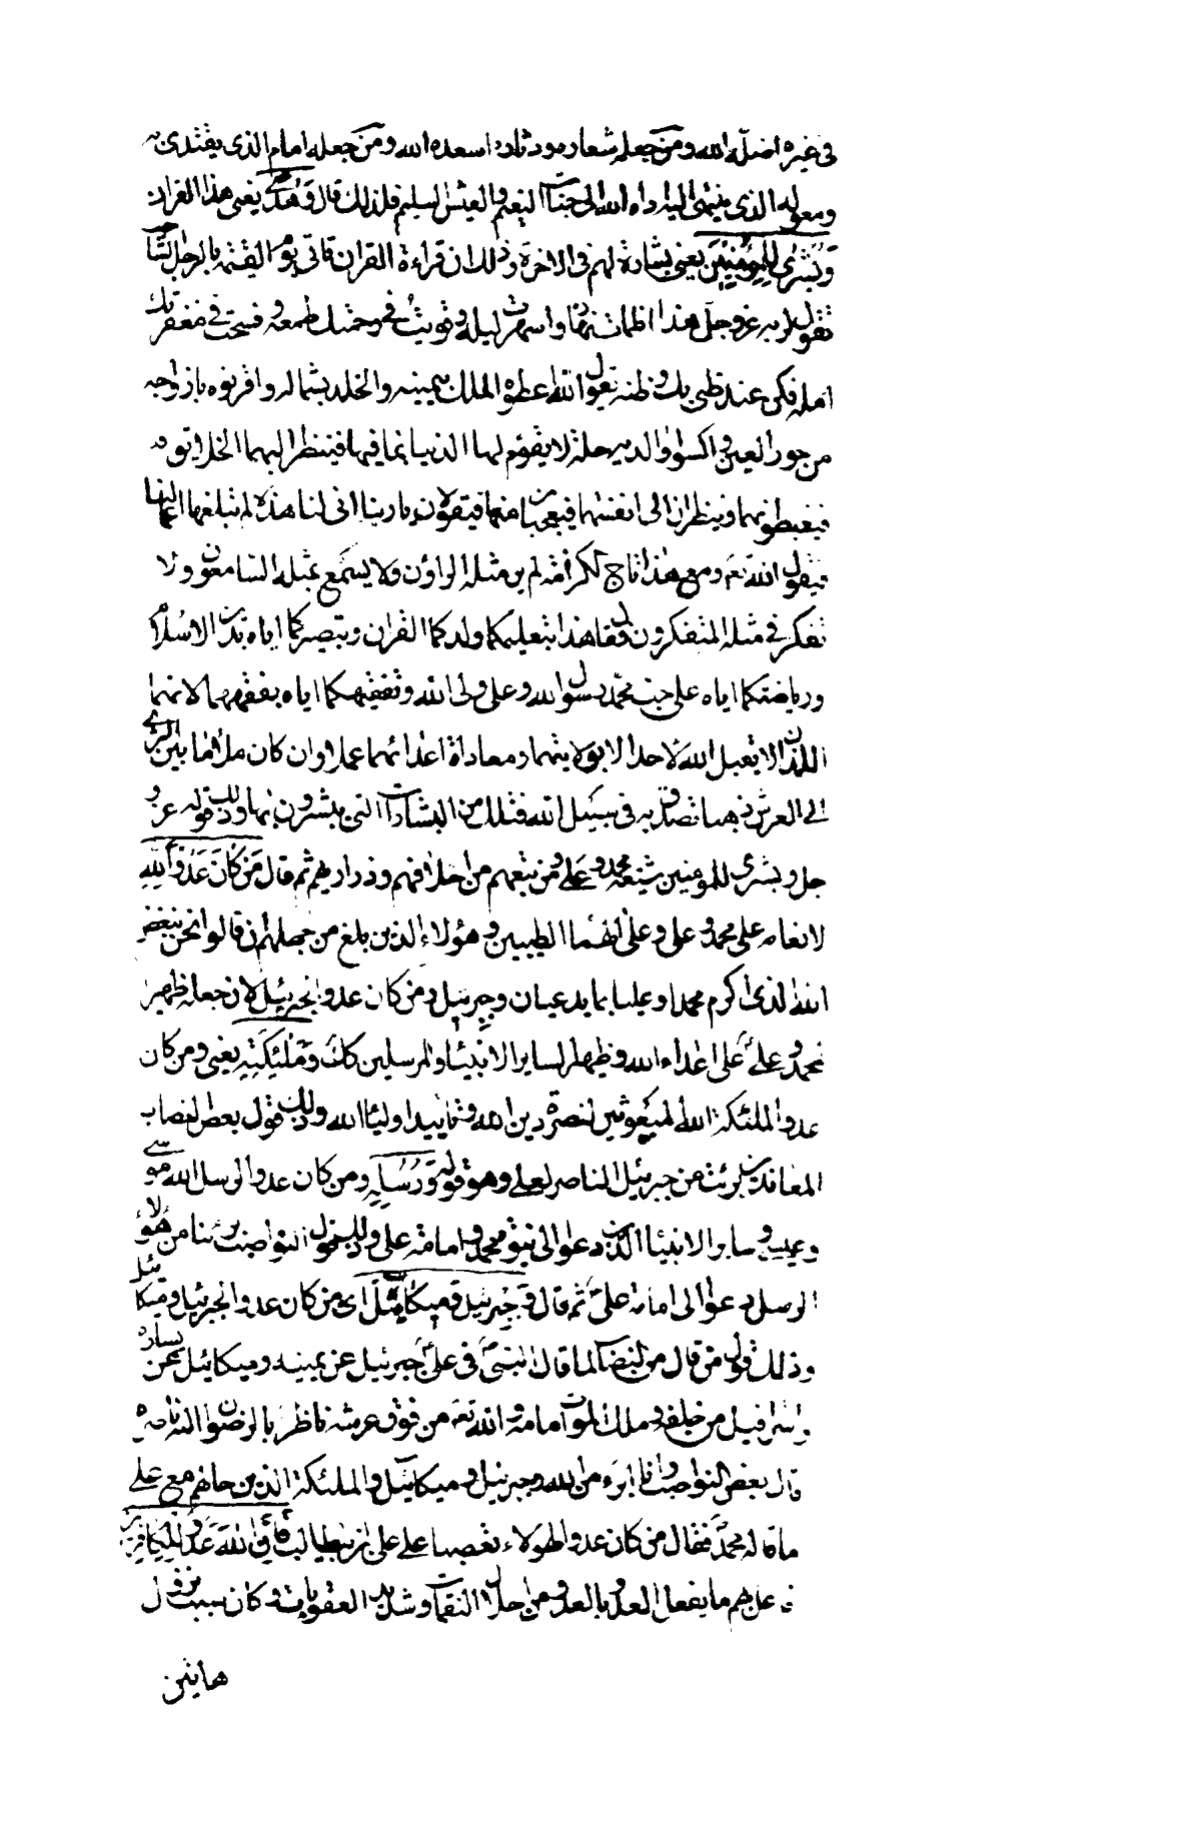 في غيره اضلّه الله ومن جعله شعاره ودثاره اسعده الله ومن جعله امامه الذى يقتدى به
ومعوله الذى ينتهى اليه اداه الله الى جنات النعيم والعيش السليم فلذلك قال وهدى يعنى هذا القران
وبشرى للمؤمنين يعنى بشارة لهم فى الاخرة وذلك ان قراءة القران تاتى يوم القيمة بالرجل الشاب
تقول لربه عز وجل هذا اظمات نهاره واسهرت ليله وقويت فى رحمتك طمعه وفسحت فى مغفرتك
امله فكن عند ظنى بك وظنه يقول الله اعطوه الملك بيمينه والخلد بشماله واقرنوه بازواجه
من حور العين واكسوا والديه حلة لا يقوم لها الدنيا بما فيها فينظر اليهما الخلايق
فيغبطونهما وينظران الى انفسهما فيعجبان منهما فيقولان يا ربنا انى لنا هذه لم تبلغها اعمالنا
فيقول الله تعم ومع هذا تاج الكرامة لم ير مثله الراؤن ولا يسمع بمثله السامعون ولا
تفكر فى مثله المتفكرون فيقال هذا بتعليمكما ولدكما القران وتبصيركما اياه بدين الاسلام
ورياضتكما اياه على حب محمد رسول الله وعلى ولى الله وتفقيهكما اياه بفقههما لانهما
اللذان لا يقبل الله لاحد الا بولايتهما ومعاداة اعدائهما عملا وان كان ملأ ما بين الثرى
الى العرش ذهبا تصدق به فى سبيل الله فتلك من البشارات التى يبشرون بها وذلك قوله عز و
جل وبشرى للمومنين شيعة محمد وعلى ومن تبعهم من اخلافهم وذراريهم ثم قال من كان عدوا لله
لانعامه على محمد وعلى وعلى الهما الطيبين وهؤلاء الذين بلغ من جهلهم ان قالوا نحن نبغض
الله الذى اكرم محمدا وعليا بما يدعيان وجبرئيل ومن كان عدوا لجبرئيل لانه جعله ظهيرا
لمحمد وعلى على اعداء الله وظهيرا لساير الانبيئا والمرسلين كك وملئكته يعنى ومن كان
عدوا لملئكة الله المبعوثين لنصرة دين الله وتاييد اوليئا الله وذلك قول بعض النصاب
المعاندين برئت من جبرئيل الناصر لعلى وهو قوله ورسله ومن كان عدوا لرسل الله موسى
وعيسى وساير الانبيئا الذين دعوا الى نبوة محمد وامامة على وذلك قول النواصب برئنا من هؤلاء
الرسل دعوا الى امامة على ثم قال وجبرئيل وميكائيل اى من كان عدوا لجبرئيل وميكائيل
وذلك قول من قال من النصاب لما قال النبى فى على جبرئيل عن يمينه وميكائيل عن يساره
واسرافيل من خلفه وملك الموت امامه والله تعم من فوق عرشه ناظر بالرضوان اليه ناصره
قال بعض النواصب فانا ابرء من الله وجبرئيل وميكائيل والملئكة الذين حالهم مع على
ما قاله محمد فقال من كان عدوا لهؤلاء تعصبا على على بن ابيطالب فان الله عدو للكافرين
فاعل بهم ما يفعل العدو بالعدو من احلال النقمات وشديد العقوبات وكان سبب نزول
هاتين